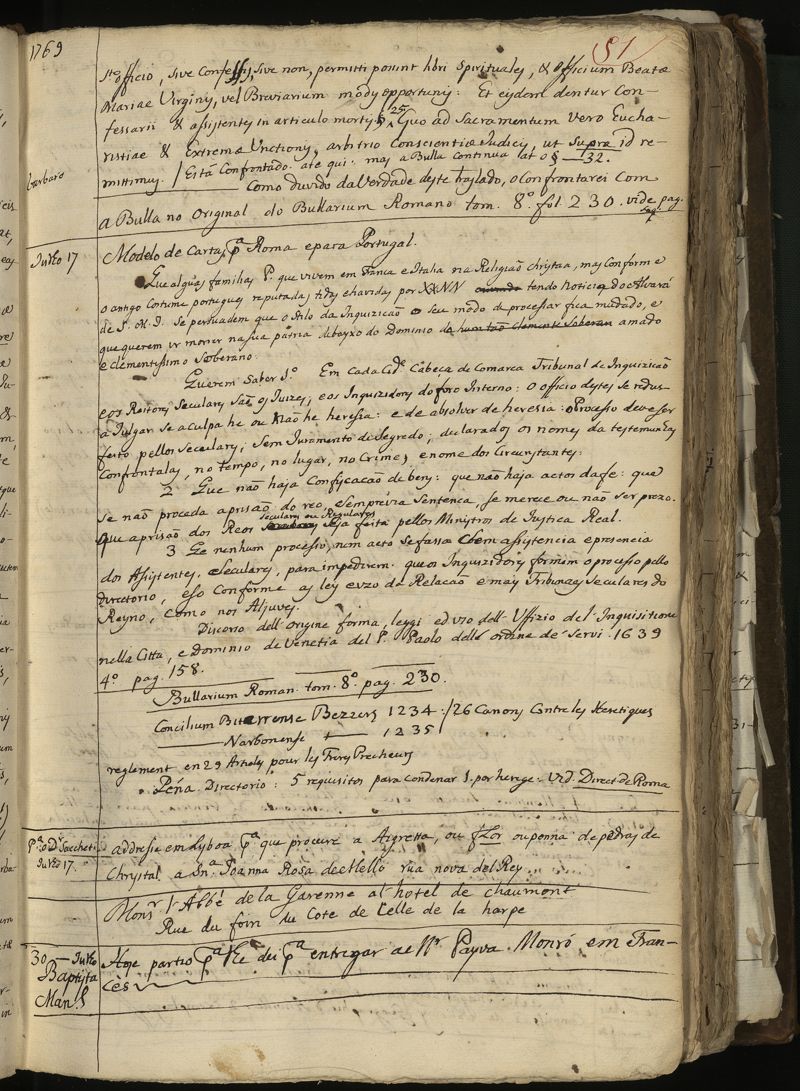 1769
51
Sto officio, sive Confessis, sive non, permitti possint libri spirituales, & officium Beatæ
Mariae Virginis, vel Breviarium modis opportunis: Et eisdem dentur Con-
fessarii & assistentes in articulo mortis. § 25 Quo ad Sacramentum vero Eucha-
ristiae & Extremæ Unctionis, arbitrio Conscientiæ Judicis, ut Supra id re-
mittimus. / Está Confrontado até qui. mas a Bulla continua at o § — 32.
barbaro
Como duvido da Verdade deste traslado, o Confrontarei com
a Bulla no Original do Bullarium Romano tom. 8.º fol. 230. vide pag.
seq.
Julho 17
Modelo de Cartas pa Roma e para Portugal.
Que algũas familias P. que vivem em França e Italia na Religião christaa, mas Conforme
o antigo Costume portugues reputadas tidas e havidas por XXNN tendo Noticia do Alvará
de S. M. F. Se persuadem que o Stilo da Inquizição e seu modo de processar fica mudado, e
que querem ir morrer na sua patria debayxo do Dominio de hum tão Clemente Soberano amado
e Clementissimo Soberano.
Querem Saber 1.º Em Cada Cide Cabeça de Comarca Tribunal de Inquizição
e os Reitores Seculares São os Juizes, e os Inquizidores do foro Interno: o officio destes se reduz
a Julgar se a Culpa he ou Não he heresia: e de absolver de heresia: o Processo deve ser
feito pellos Seculares, Sem Juramento de Segredo, declarados os nomes da testemunhas
Confrontalas, no tempo, no lugar, no Crime, e nome dos Circunstantes:
2 Que não haja Confiscacaõ de bens: que não haja actos da fe: que
se não proceda a prisão do reo, Sem previa Sentença, se merece ou não ser prezo.
Seculares ou Regulares
Que a prisão dos Reos Seja feita pellos Ministros de Justica Real.
3 Qe nenhum processo, nem acto se fassa Sem assistencia e presencia
dos Assistentes, Seculares, para impedirem que os Inquizidores formem o processo pello
directorio, e So Conforme as ley e uzo da Relacaõ e mais Tribunaes seculares do
Reyno, Como nos Aljuves.
Discorso dell'Origine forma, leggi ed uso dell' Uffizio del Inquisitione
nella Citta, e Dominio de Venetia del P. Paolo dell ordine de Servi. 1639
4.º pag. 158.
Bullarium Roman. tom. 8.º pag. 230.
Concilium Biterrense Bezzers 1234 :/26 Canons Contre les Heretiques
Narbonense 1235
reglement en 29 Articles pour les Frers Precheurs
Peña. Directorio: 5 requisitos para condenar 1. por herege: Vid. Direct. de Roma
Pa o Dr Sacchetti
Julho 17.
addresse em Lysboa pa que procure a Aigretta, ou flor ou penna de pedras de
Chrystal a Sna Joanna Rosa de Mello rua nova del Rey
Monsr l'Abbé de la Garenne al hotel de chaumont
Rue du foin du Cote de Celle de la harpe
30 — Julho
Baptista
Man.l
Hoje partio pa Ke dei pa entregar ao Nr. Payva. Monró em Fran-
cès